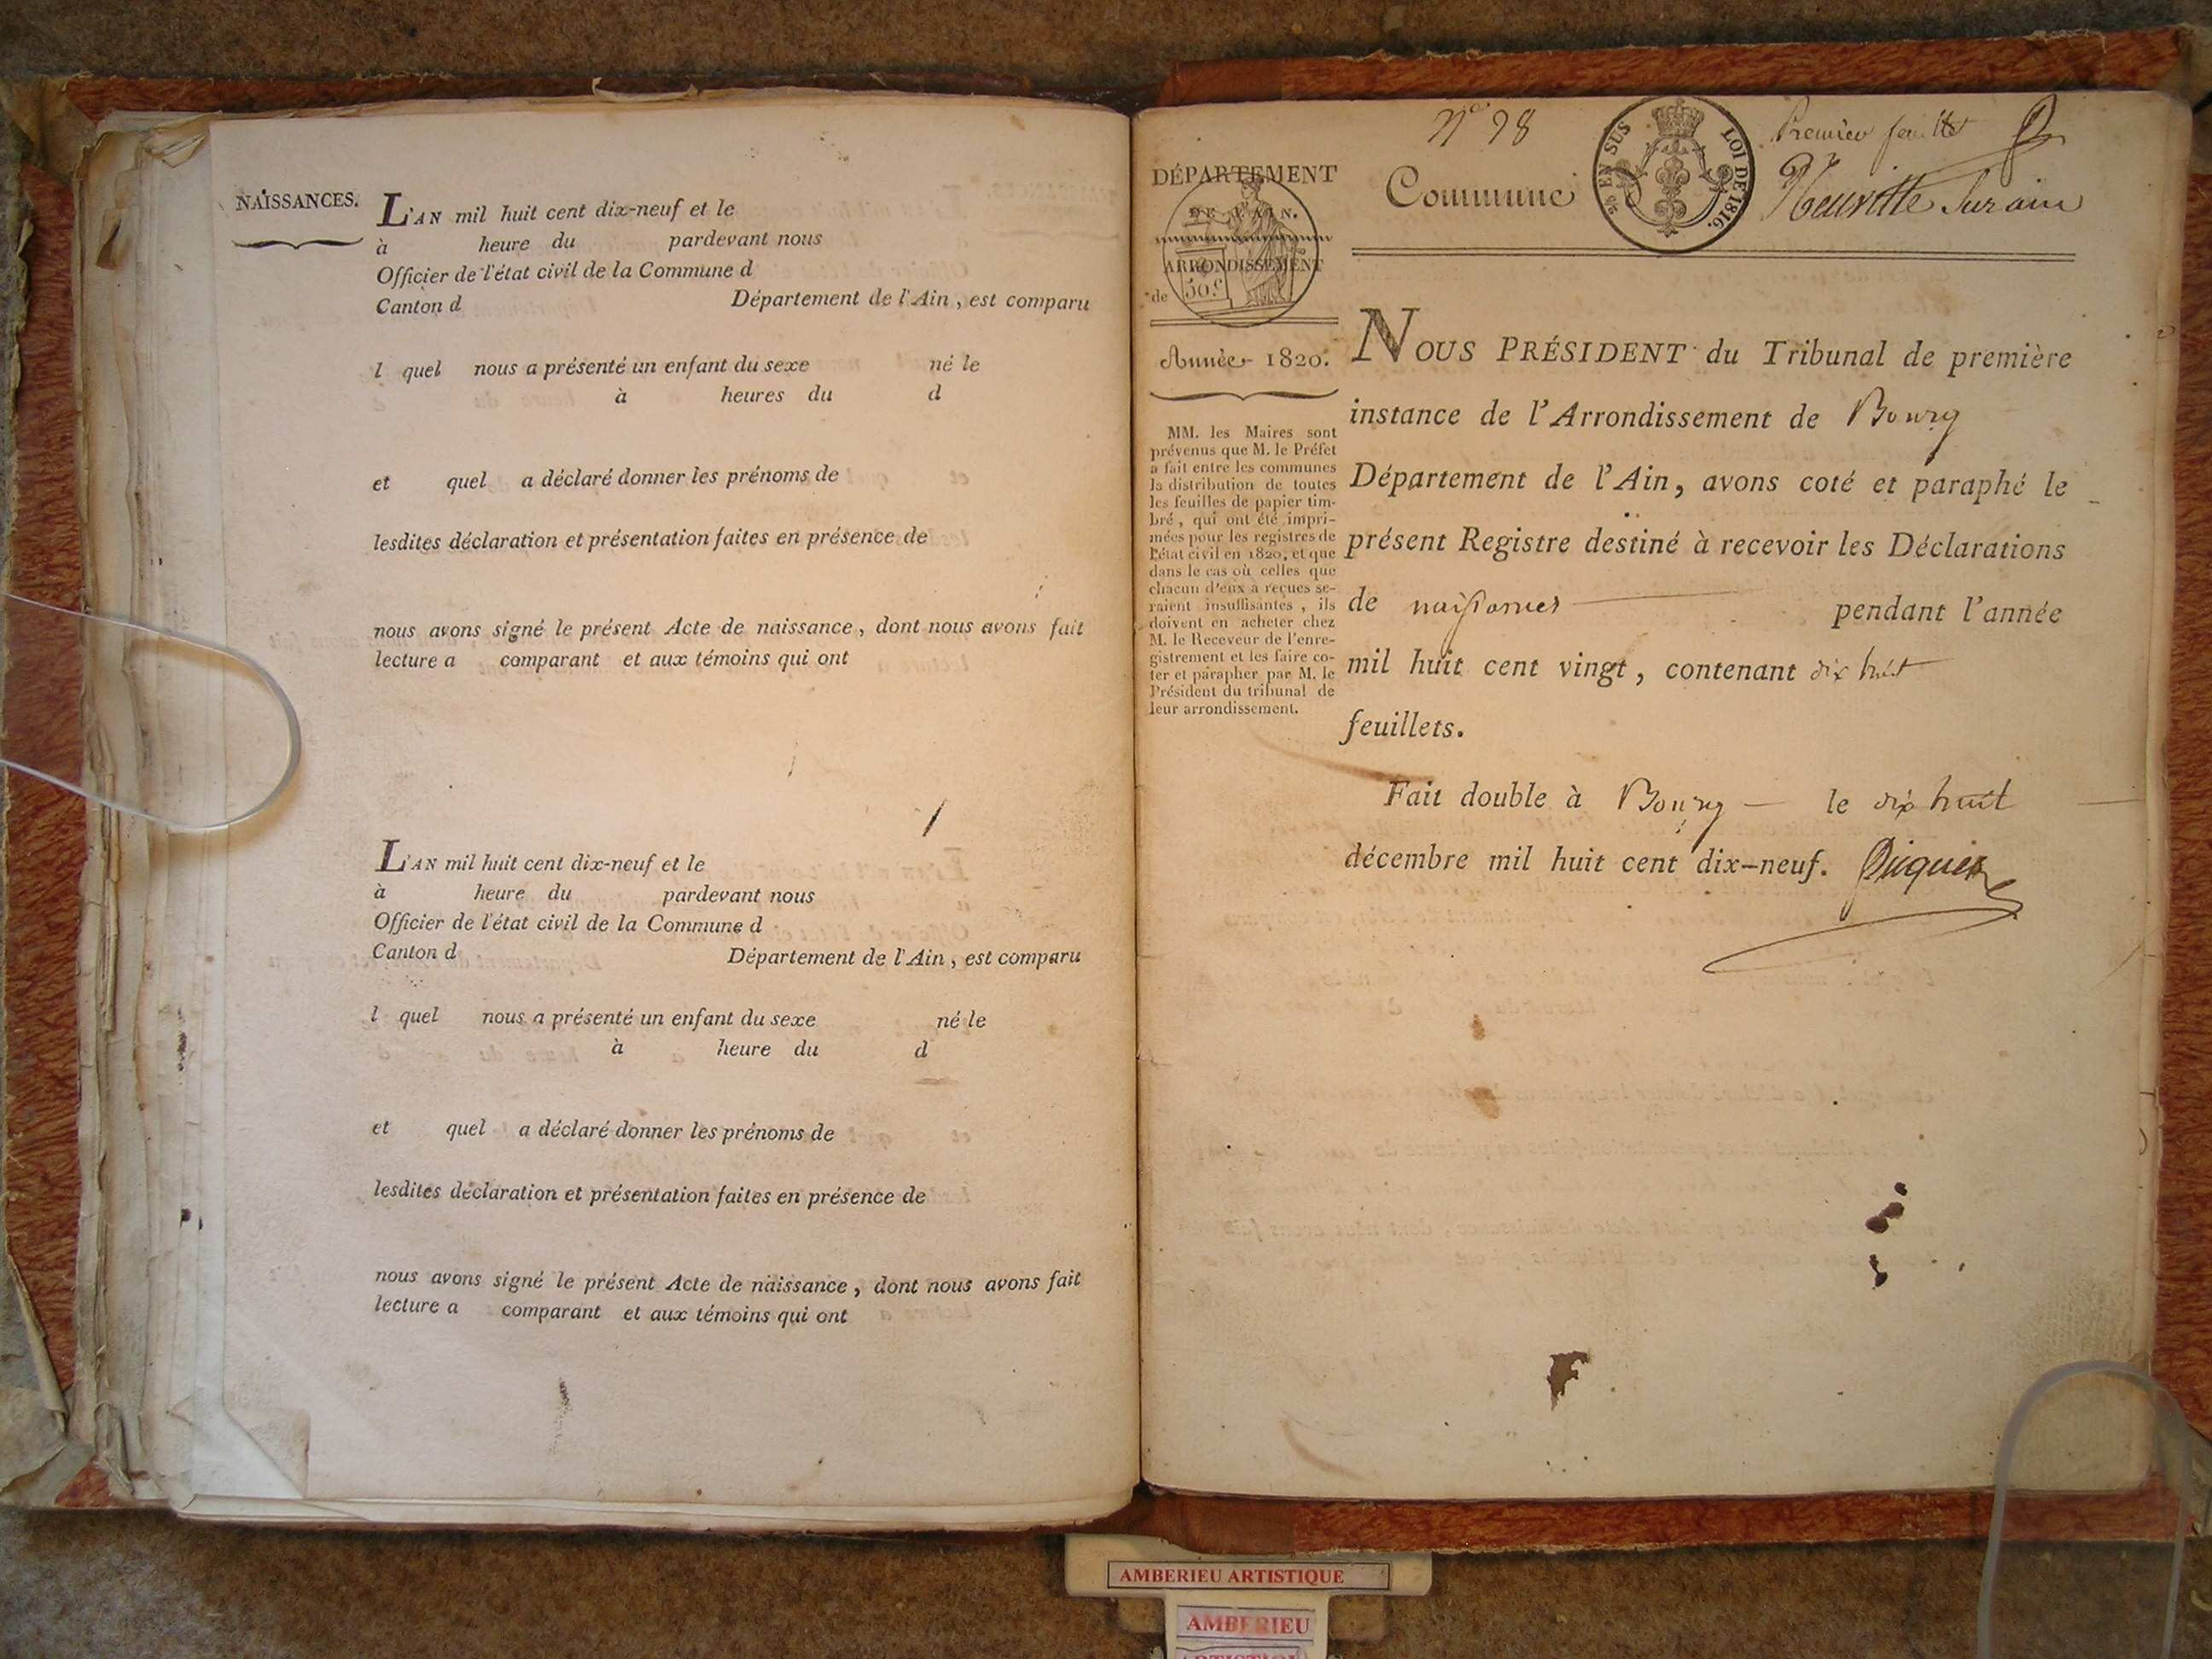 NAISSANCES.
L'AN mil huit cent dix-neuf et le
à heure du pardevant nous
Officier de l'état civil de la Commune d
Canton d Département de l'Ain, est comparu
l quel nous a présenté un enfant du sexe né le
à heures du d
et quel a déclaré donner les prénoms de
lesdites déclaration et présentation faites en présence de
nous avons signé le présent Acte de naissance, dont nous avons fait
lecture a comparant et aux témoins qui ont
L'AN mil huit cent dix-neuf et le
à heure du pardevant nous
Officier de l'état civil de la Commune d
Canton d Département de l'Ain, est comparu
l quel nous a présenté un enfant du sexe né le
à heure du d
et quel a déclaré donner les prénoms de
lesdites déclaration et présentation faites en présence de
nous avons signé le présent Acte de naissance, dont nous avons fait
lecture a comparant et aux témoins qui ont
N° 98
Premier feuillet
DÉPARTEMENT
DE L'AIN.
ARRONDISSEMENT
de
50c
Année 1820.
MM. les Maires sont
prévenus que M. le Préfet
a fait entre les communes
la distribution de toutes
les feuilles de papier tim-
bré, qui ont été impri-
mées pour les registres de
l'état civil en 1820, et que
dans le cas où celles que
chacun d'eux a reçues se-
raient insuffisantes, ils
doivent en acheter chez
M. le Receveur de l'enre-
gistrement et les faire co-
ter et parapher par M. le
Président du tribunal de
leur arrondissement.
Commune Neuville sur ain
EN SUS LOI DE 1816.
NOUS PRÉSIDENT du Tribunal de première
instance de l'Arrondissement de Bourg
Département de l'Ain, avons coté et paraphé le
présent Registre destiné à recevoir les Déclarations
de naissances pendant l'année
mil huit cent vingt, contenant dix huit
feuillets.
Fait double à Bourg le dix huit
décembre mil huit cent dix-neuf.
AMBERIEU ARTISTIQUE
AMBERIEU
ARTISTIQUE